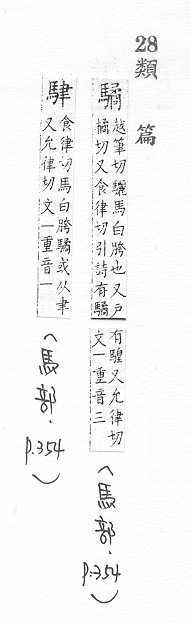 28類 篇
驈 越筆切驪馬白胯也又戶
橘切又食律切引詩有驈
有騜又允律切
文一重音三
(馬部.p.354)
䮇 食律切馬白胯驈或从聿
又允律切文一重音一
(馬部.p.354)